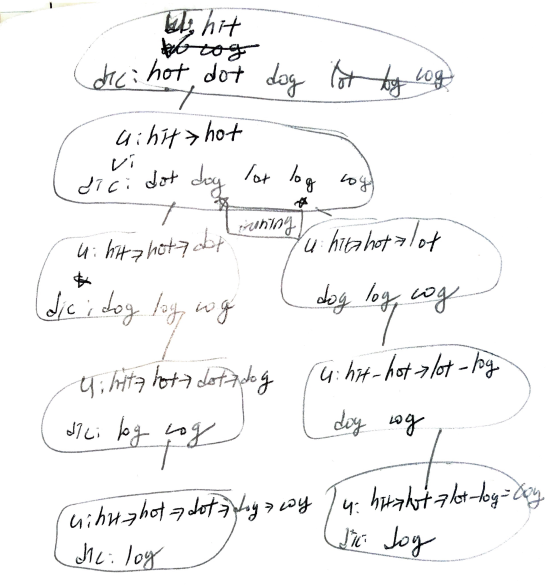 u: hit
cog
dic: hot dot dog lot log cog
u: hit → hot
vi
dic: dot dog lot log cog
runing
u: hit → hot → dot
dic: dog log cog
u: hit → hot → lot
dog log cog
u: hit → hot → dot → dog
dic: log cog
u: hit - hot → lot - log
dog cog
u: hit → hot → dot → dog → cog
dic: log
u: hit → hot → lot - log = cog
dic: dog